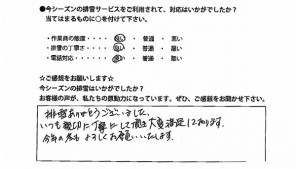 ●今シーズンの排雪サービスをご利用されて、対応はいかがでしたか？
当てはまるものに○を付けて下さい。
・作業員の態度・・・・良い ・ 普通 ・ 悪い
・排雪の丁寧さ・・・・良い ・ 普通 ・ 悪い
・電話対応・・・・・・良い ・ 普通 ・ 悪い
☆ご感想をお願いします☆
今シーズンの排雪はいかがでしたか？
お客様の声が、私たちの原動力になっています。ぜひ、ご感想をお聞かせ下さい。
排雪ありがとうございました。
いつも親切に丁寧にして頂き大変満足して居ります。
今年の冬もよろしくお願いいたします。